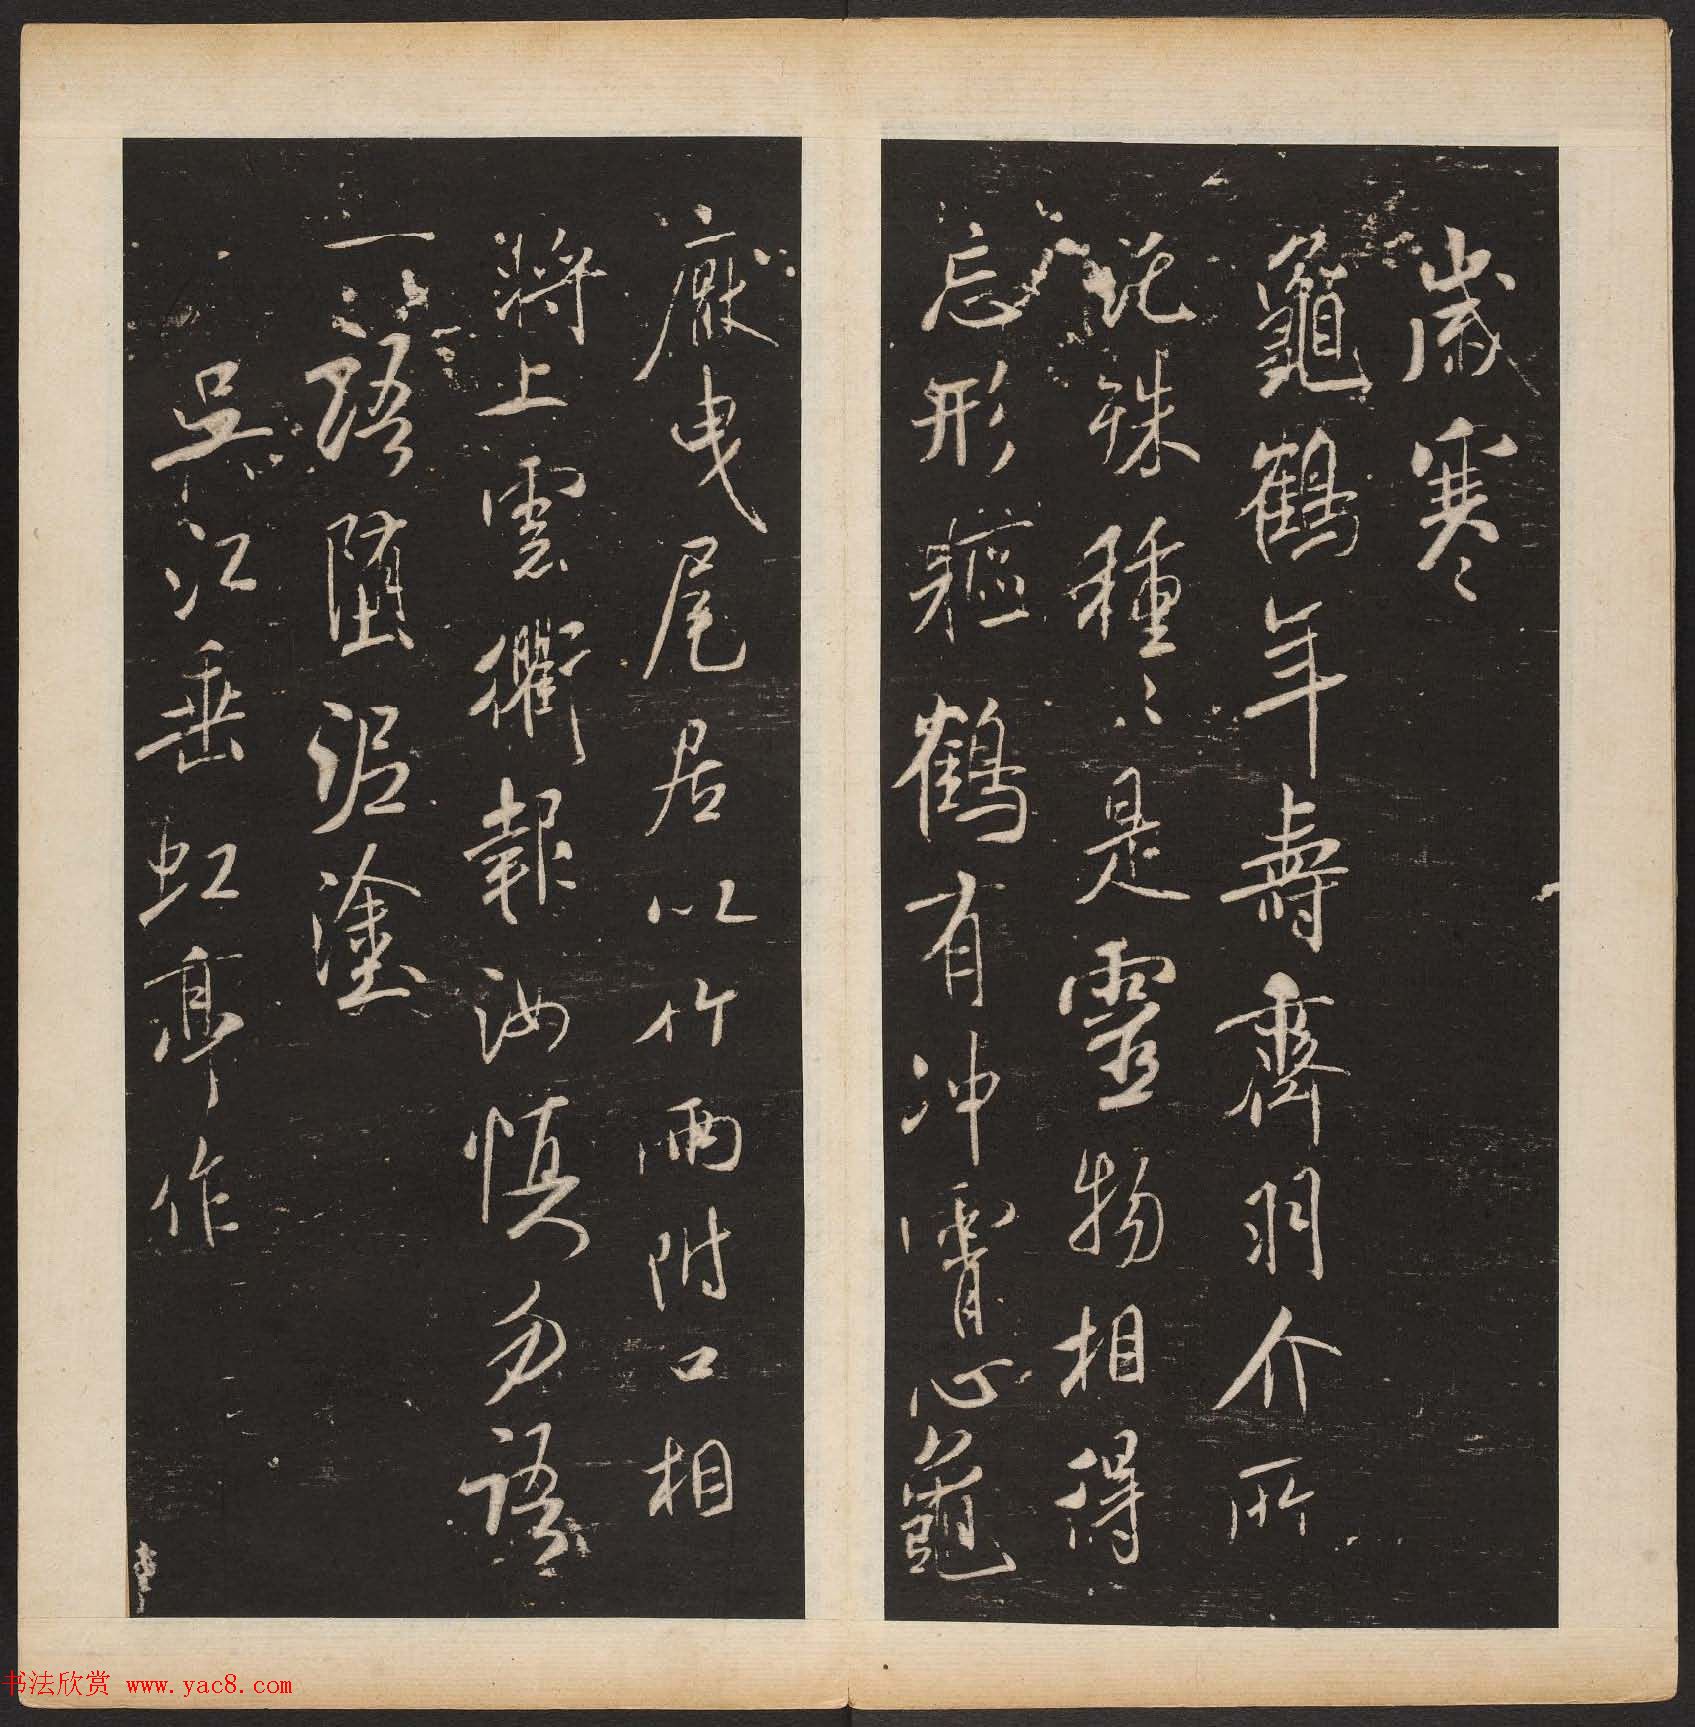 歲寒
龜鶴年壽齊羽介所
託殊種種是靈物相得
忘形軀鶴有沖霄心龜
厭曳尾居以竹兩附口相
將上雲衢報汝慎勿語
一語墮泥塗
吳江垂虹亭作
书法欣赏 www.yac8.com